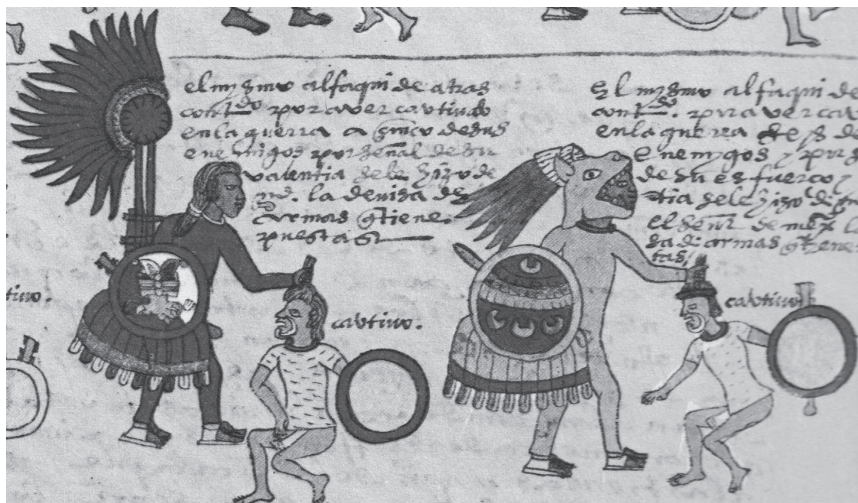 el mysmo alfaqui de atras
contdo por aver cavtivado
en la guerra a çinco de sus
enemigos por señal de su
valentia se le hizo de
md. la devisa de
armas q tiene
puestas
El mysmo alfaqui de
contdo. por aver cav
en la guerra seys de
enemygos y por s
de su esfuerço y
tia se le hizo de m
el señor de mexco la
sa de armas q tiene
tas
tivo.
cavtivo.
cavtivo